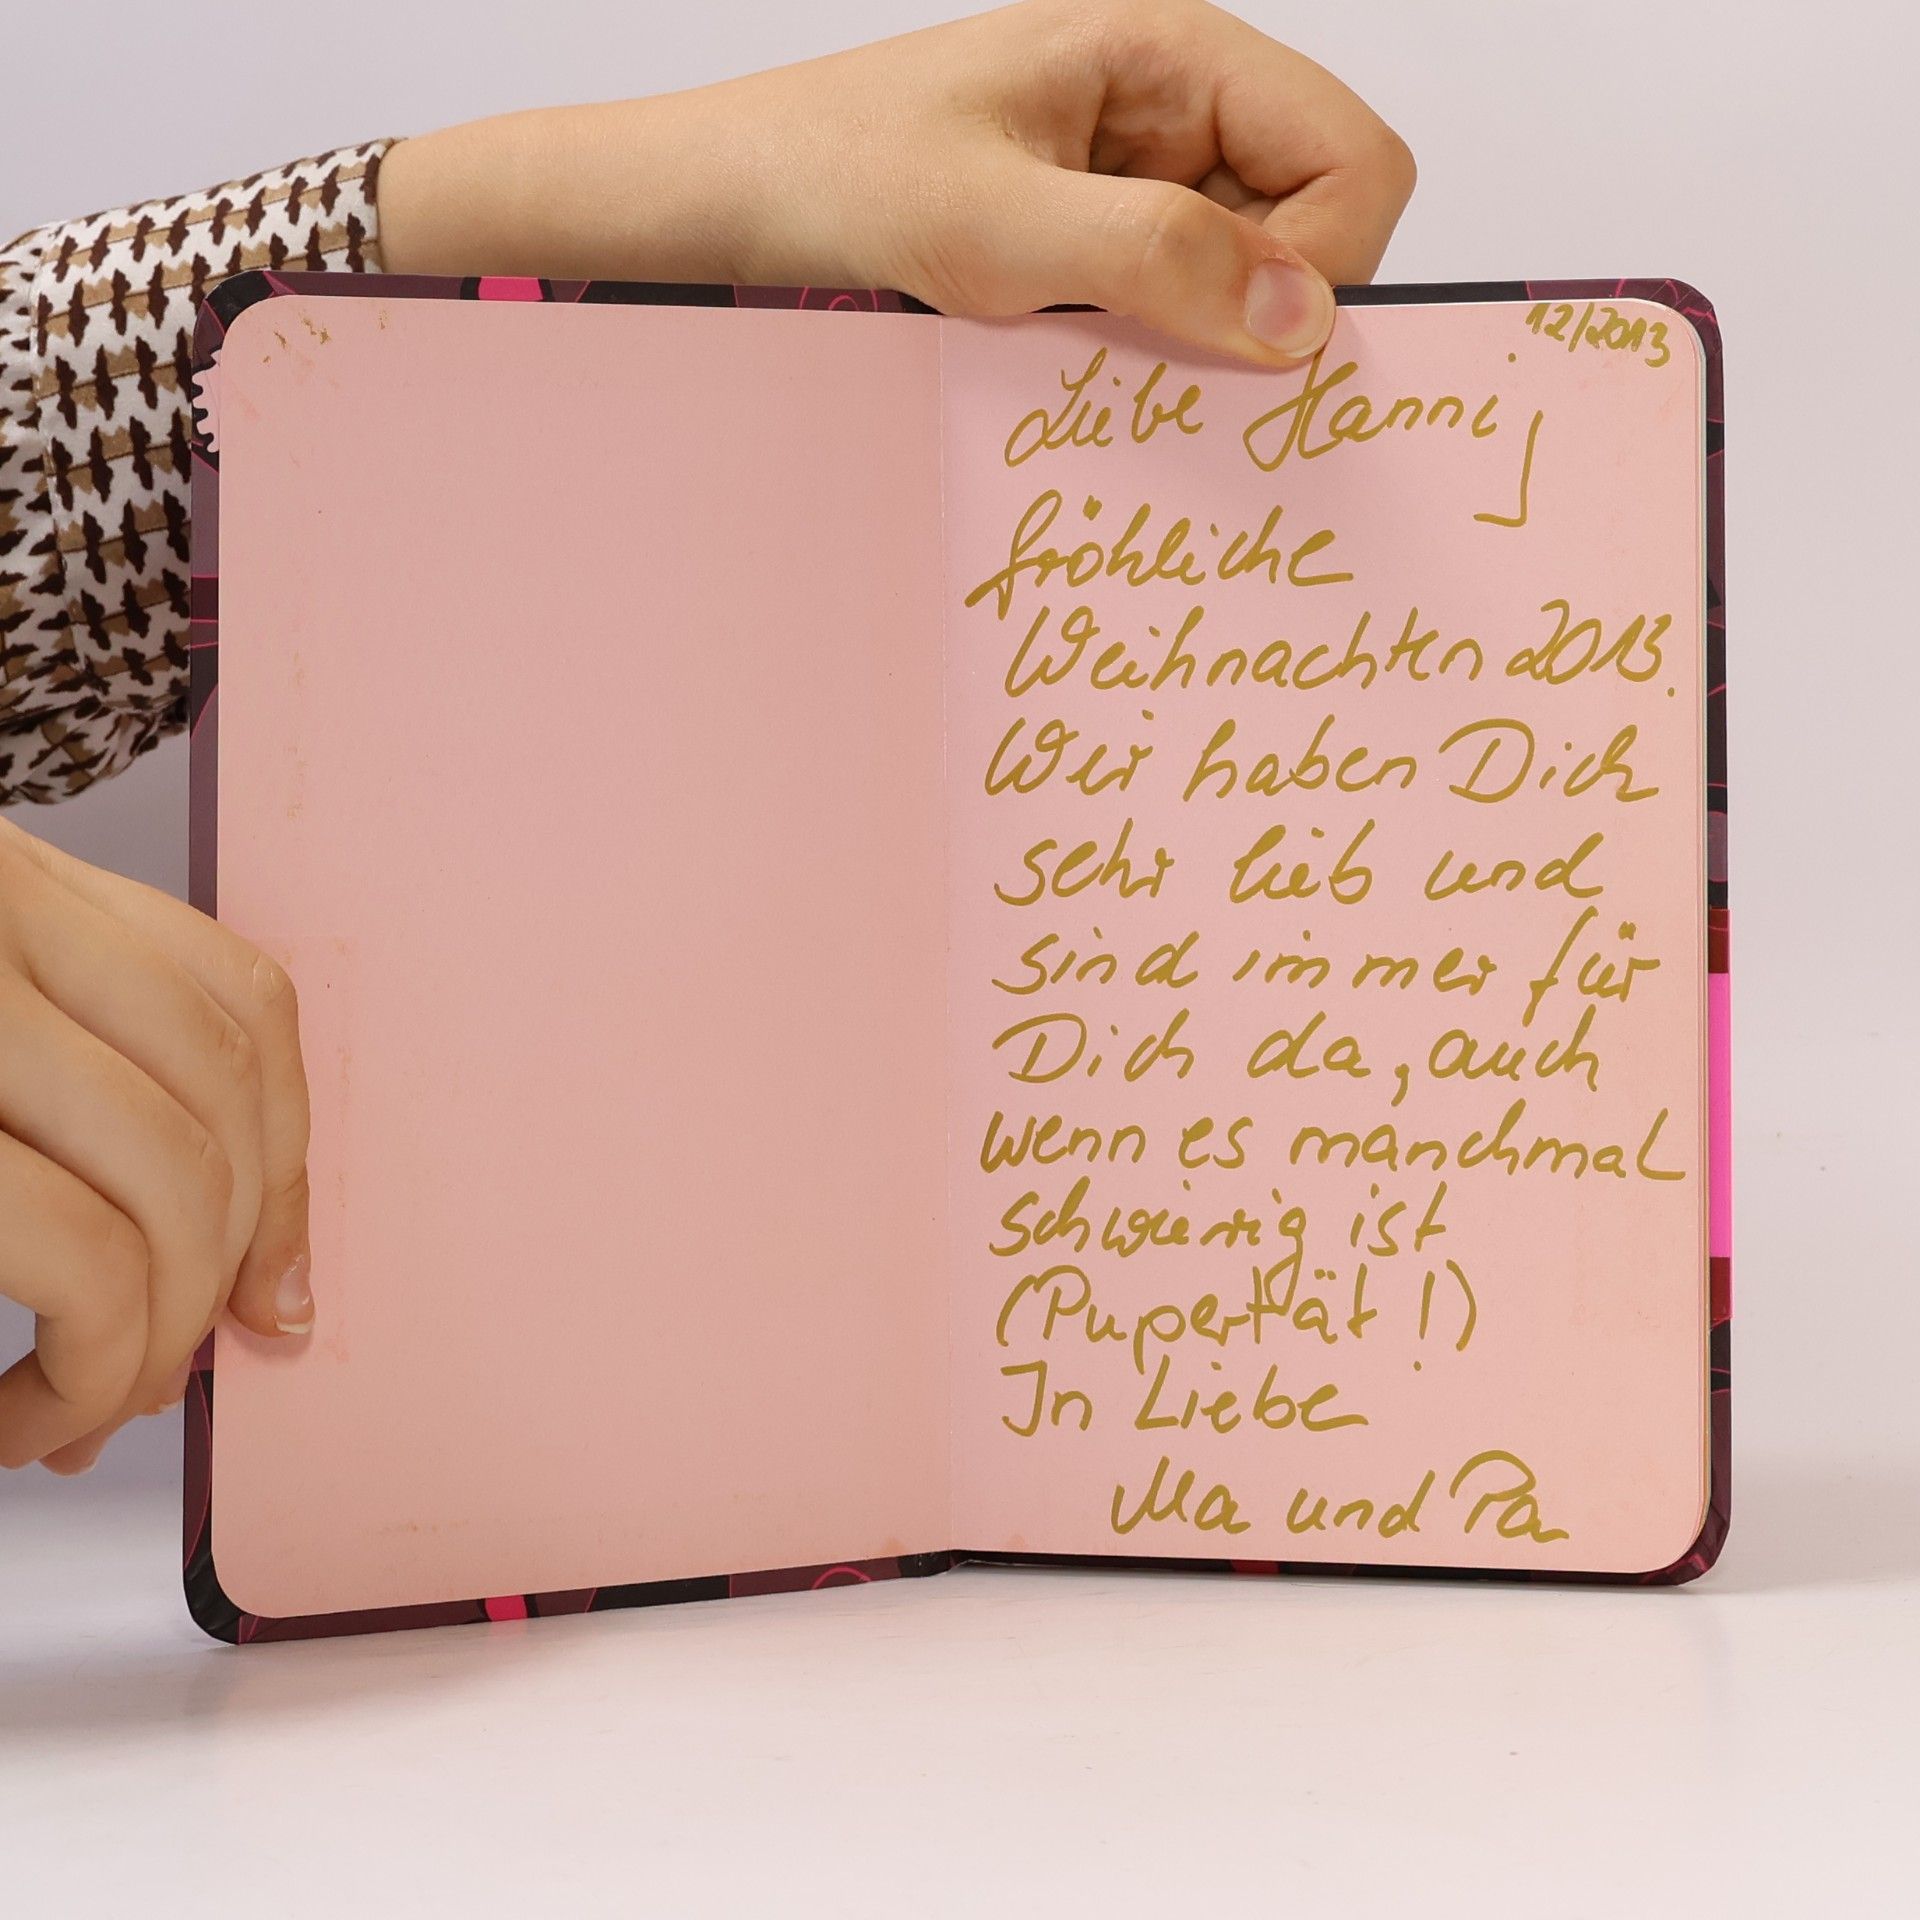 12/2013
Liebe Hanni,
fröhliche
Weihnachten 2013.
Wir haben Dich
sehr lieb und
sind immer für
Dich da, auch
wenn es manchmal
schwierig ist
(Pupertät!)
In Liebe
Ma und Pa